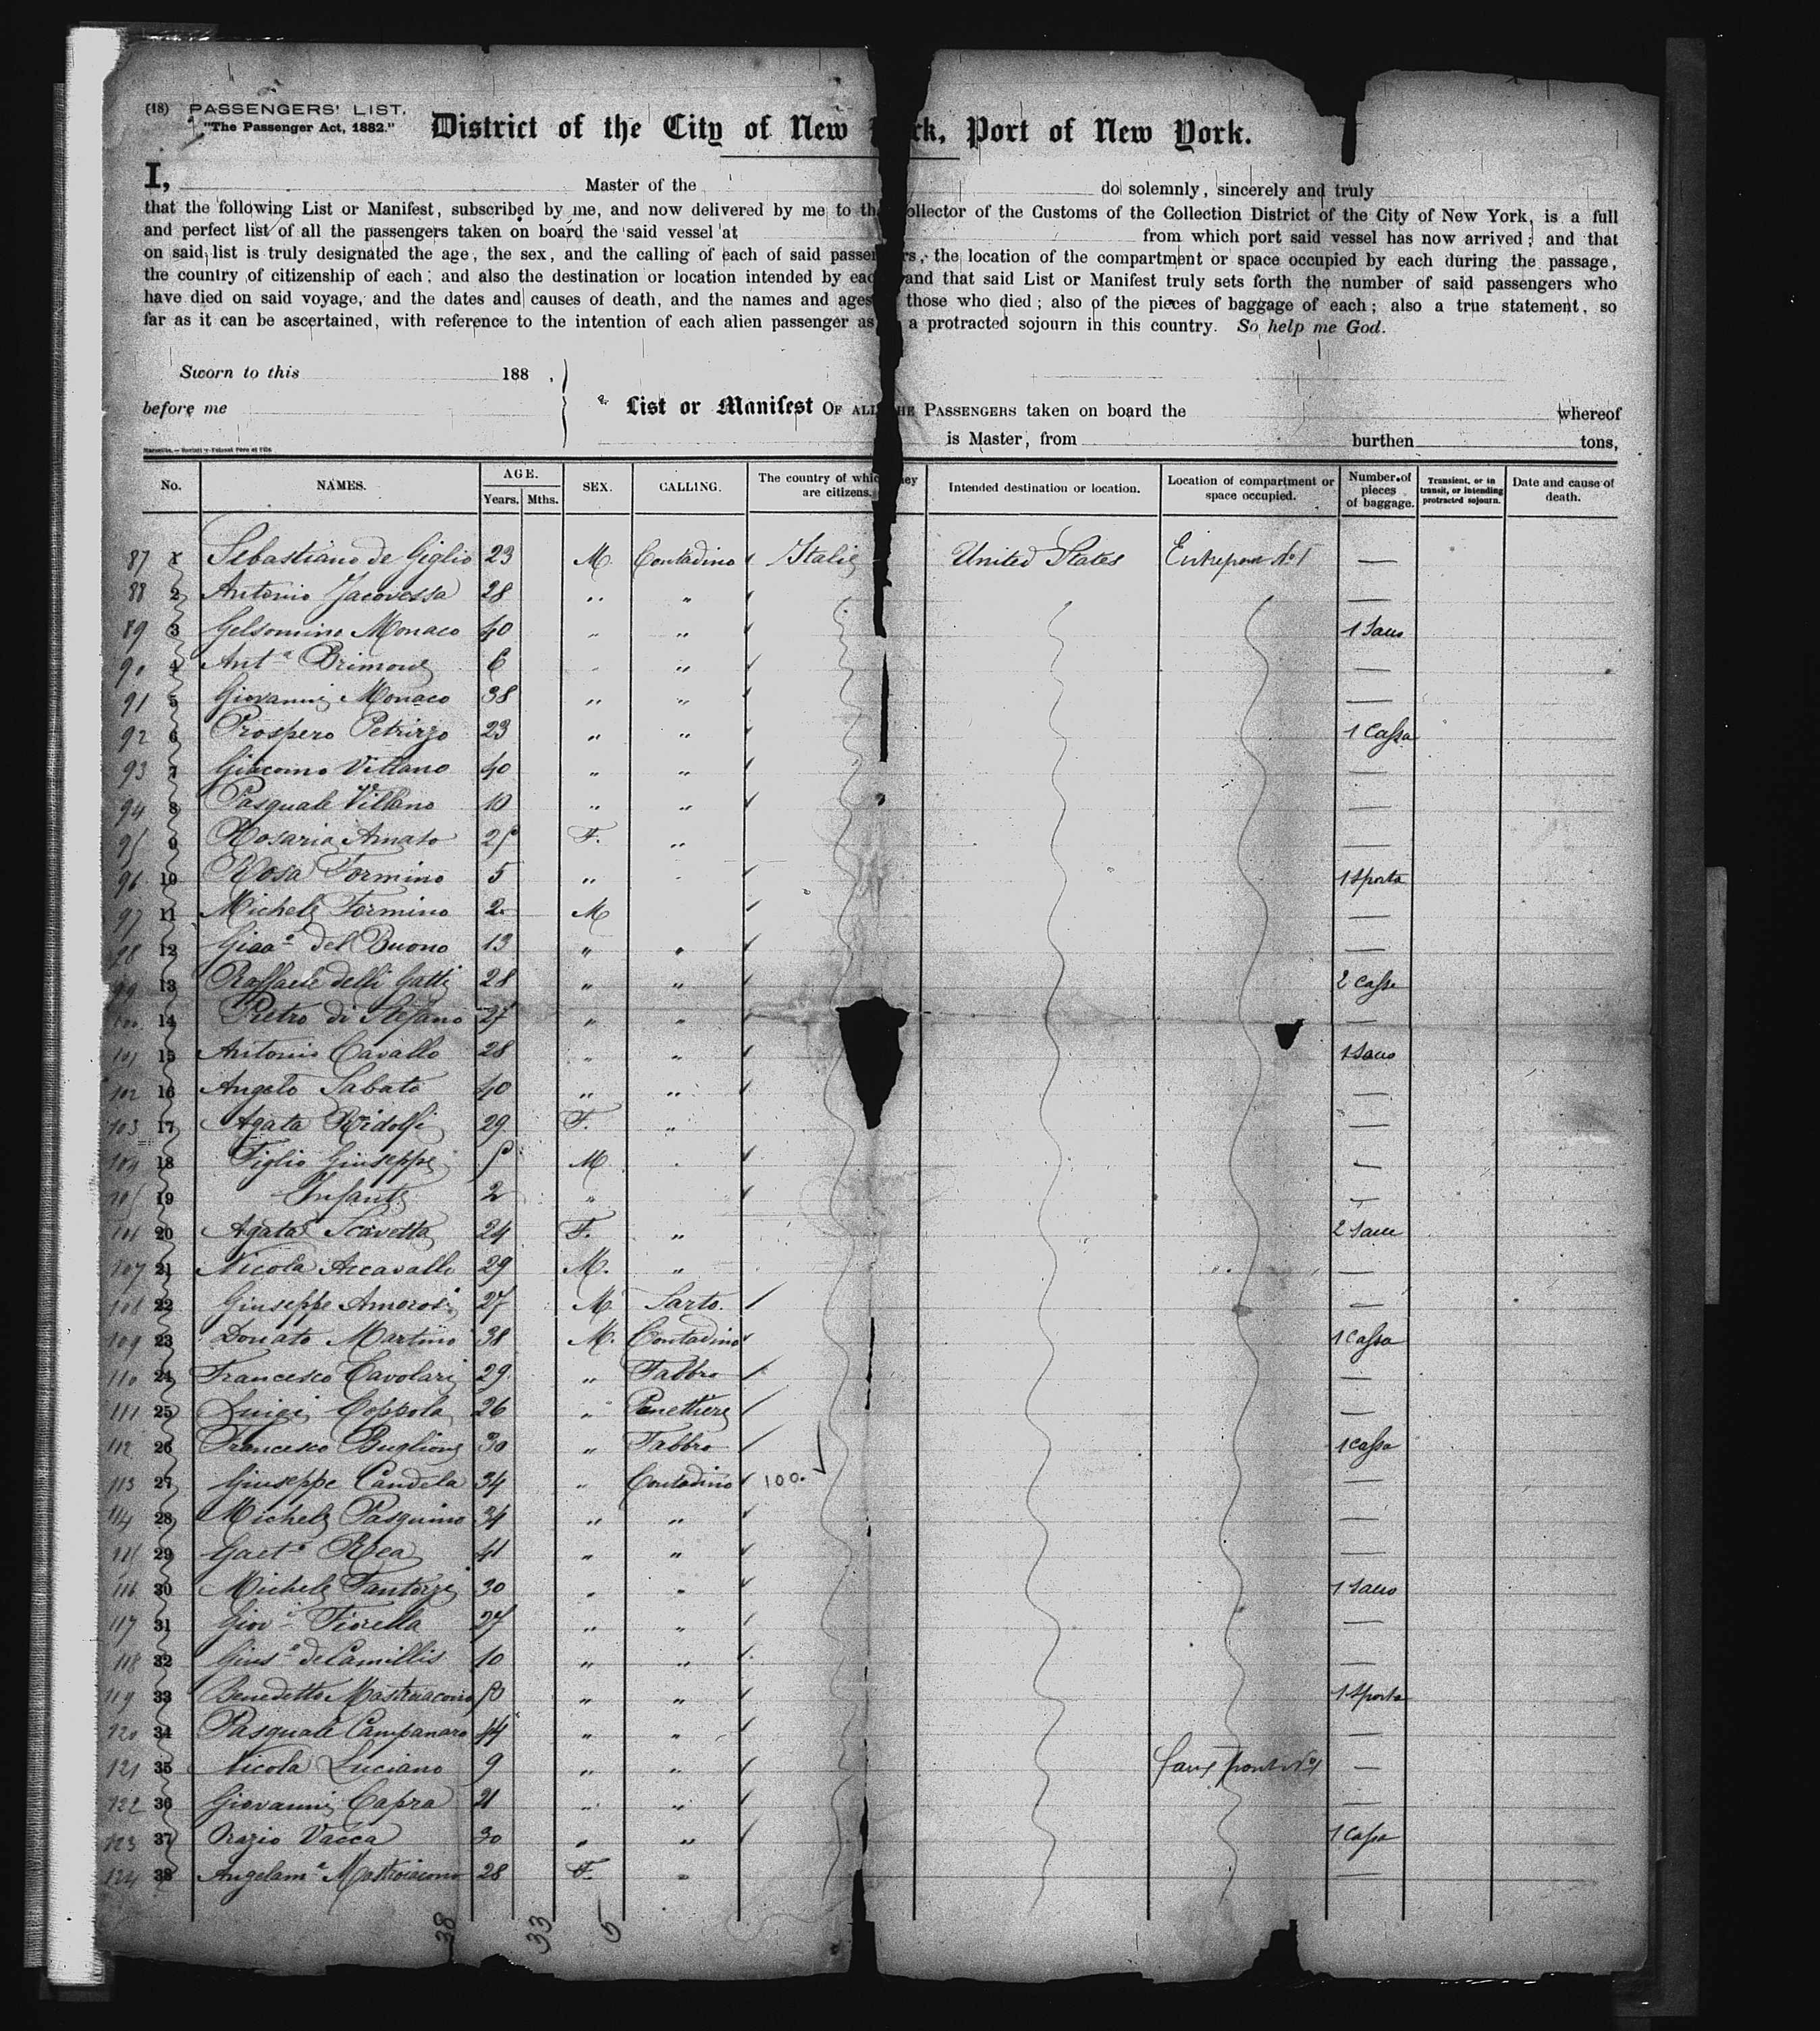 (18) PASSENGERS' LIST.
"The Passenger Act, 1882."
District of the City of New York, Port of New York.
I, Master of the do solemnly, sincerely and truly
that the following List or Manifest, subscribed by me, and now delivered by me to the Collector of the Customs of the Collection District of the City of New York, is a full
and perfect list of all the passengers taken on board the said vessel at from which port said vessel has now arrived; and that
on said list is truly designated the age, the sex, and the calling of each of said passengers, the location of the compartment or space occupied by each during the passage,
the country of citizenship of each; and also the destination or location intended by each and that said List or Manifest truly sets forth the number of said passengers who
have died on said voyage, and the dates and causes of death, and the names and ages those who died; also of the pieces of baggage of each; also a true statement, so
far as it can be ascertained, with reference to the intention of each alien passenger as a protracted sojourn in this country. So help me God.
Sworn to this 188 ,
before me
List or Manifest OF ALL THE PASSENGERS taken on board the whereof
is Master, from burthen tons,
No. NAMES. AGE. Years. Mths. SEX. CALLING. The country of which they are citizens. Intended destination or location. Location of compartment or space occupied. Number of pieces of baggage. Transient, or in transit, or intending protracted sojourn. Date and cause of death.
87 1 Sebastiano de Giglio 23 M. Contadino Italie United States Entrepont No 1 —
88 2 Antonio Jacovessa 28 " " —
89 3 Gelsomino Monaco 40 " " 1 Sacco
90 4 Anta Brimone 6 " " —
91 5 Giovanni Monaco 38 " " —
92 6 Prospero Petrizzo 23 " " 1 Cassa
93 7 Giacomo Villano 40 " " —
94 8 Pasquale Villano 10 " " —
95 9 Rosaria Amato 25 F. " —
96 10 Rosa Formino 5 " " 1 Sporta
97 11 Michele Formino 2 M —
98 12 Giaoa del Buono 13 " " —
99 13 Raffaele delli Gatti 28 " " 2 Casse
100 14 Pietro di Stefano 27 " " —
101 15 Antonio Cavallo 28 " " 1 Sacco
102 16 Angelo Sabato 40 " " —
103 17 Agata Ridolfi 29 F. " —
104 18 Figlio Giuseppe 5 M " —
105 19 Infante 2 " —
106 20 Agata Scavetta 24 F. " 2 Sacce
107 21 Nicola Accavallo 29 M. " —
108 22 Giuseppe Amorosi 27 M. Sarto. —
109 23 Donato Martino 38 M. Contadino 1 Cassa
110 24 Francesco Cavolari 29 " Fabbro —
111 25 Luigi Coppola 26 " Panettiere —
112 26 Francesco Buglione 30 " Fabbro 1 Cassa
113 27 Giuseppe Candela 34 " Contadino 100. —
114 28 Michele Pasquino 34 " " —
115 29 Gaeto Rea 41 " " —
116 30 Michele Fantozzi 30 " " 1 Sacco
117 31 Giovi Fiorella 27 " " —
118 32 Giuse de Camillis 10 " " —
119 33 Benedetto Mastroiacono 50 " " 1 Sporta
120 34 Pasquale Campanaro 44 " " —
121 35 Nicola Luciano 9 " " faux pont No 1 —
122 36 Giovanni Capra 21 " " —
123 37 Orazio Vacca 30 " " 1 Cassa
124 38 Angelama Mastroiacono 28 F. " —
38 33 5